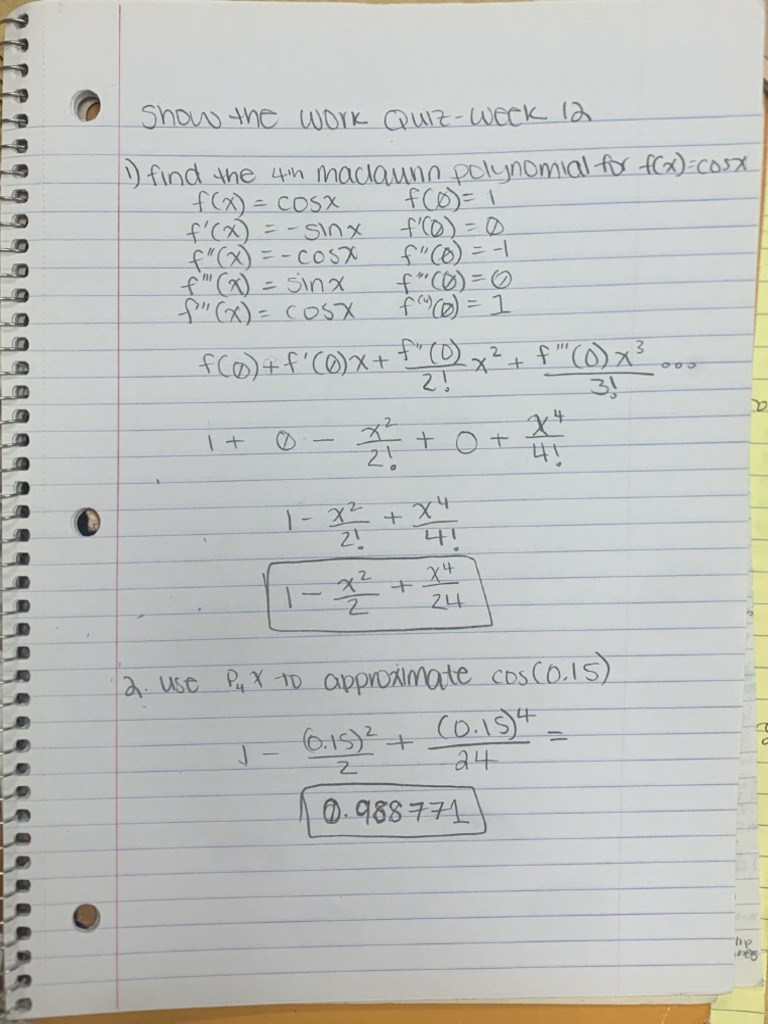 Show the work Quiz-Week 12
1) find the 4th maclaurin polynomial for f(x)=cosx
f(x) = cosx f(0)= 1
f'(x) = -sinx f'(0) = 0
f''(x) = -cosx f''(0) = -1
f'''(x) = sinx f'''(0) = 0
f''''(x) = cosx f⁽⁴⁾(0) = 1
f(0)+f'(0)x+ f''(0)/2! x² + f'''(0)x³/3! ...
1 + 0 - x²/2! + 0 + x⁴/4!
1 - x²/2! + x⁴/4!
1 - x²/2 + x⁴/24
2. use P₄x to approximate cos(0.15)
1 - (0.15)²/2 + (0.15)⁴/24 =
0.988771